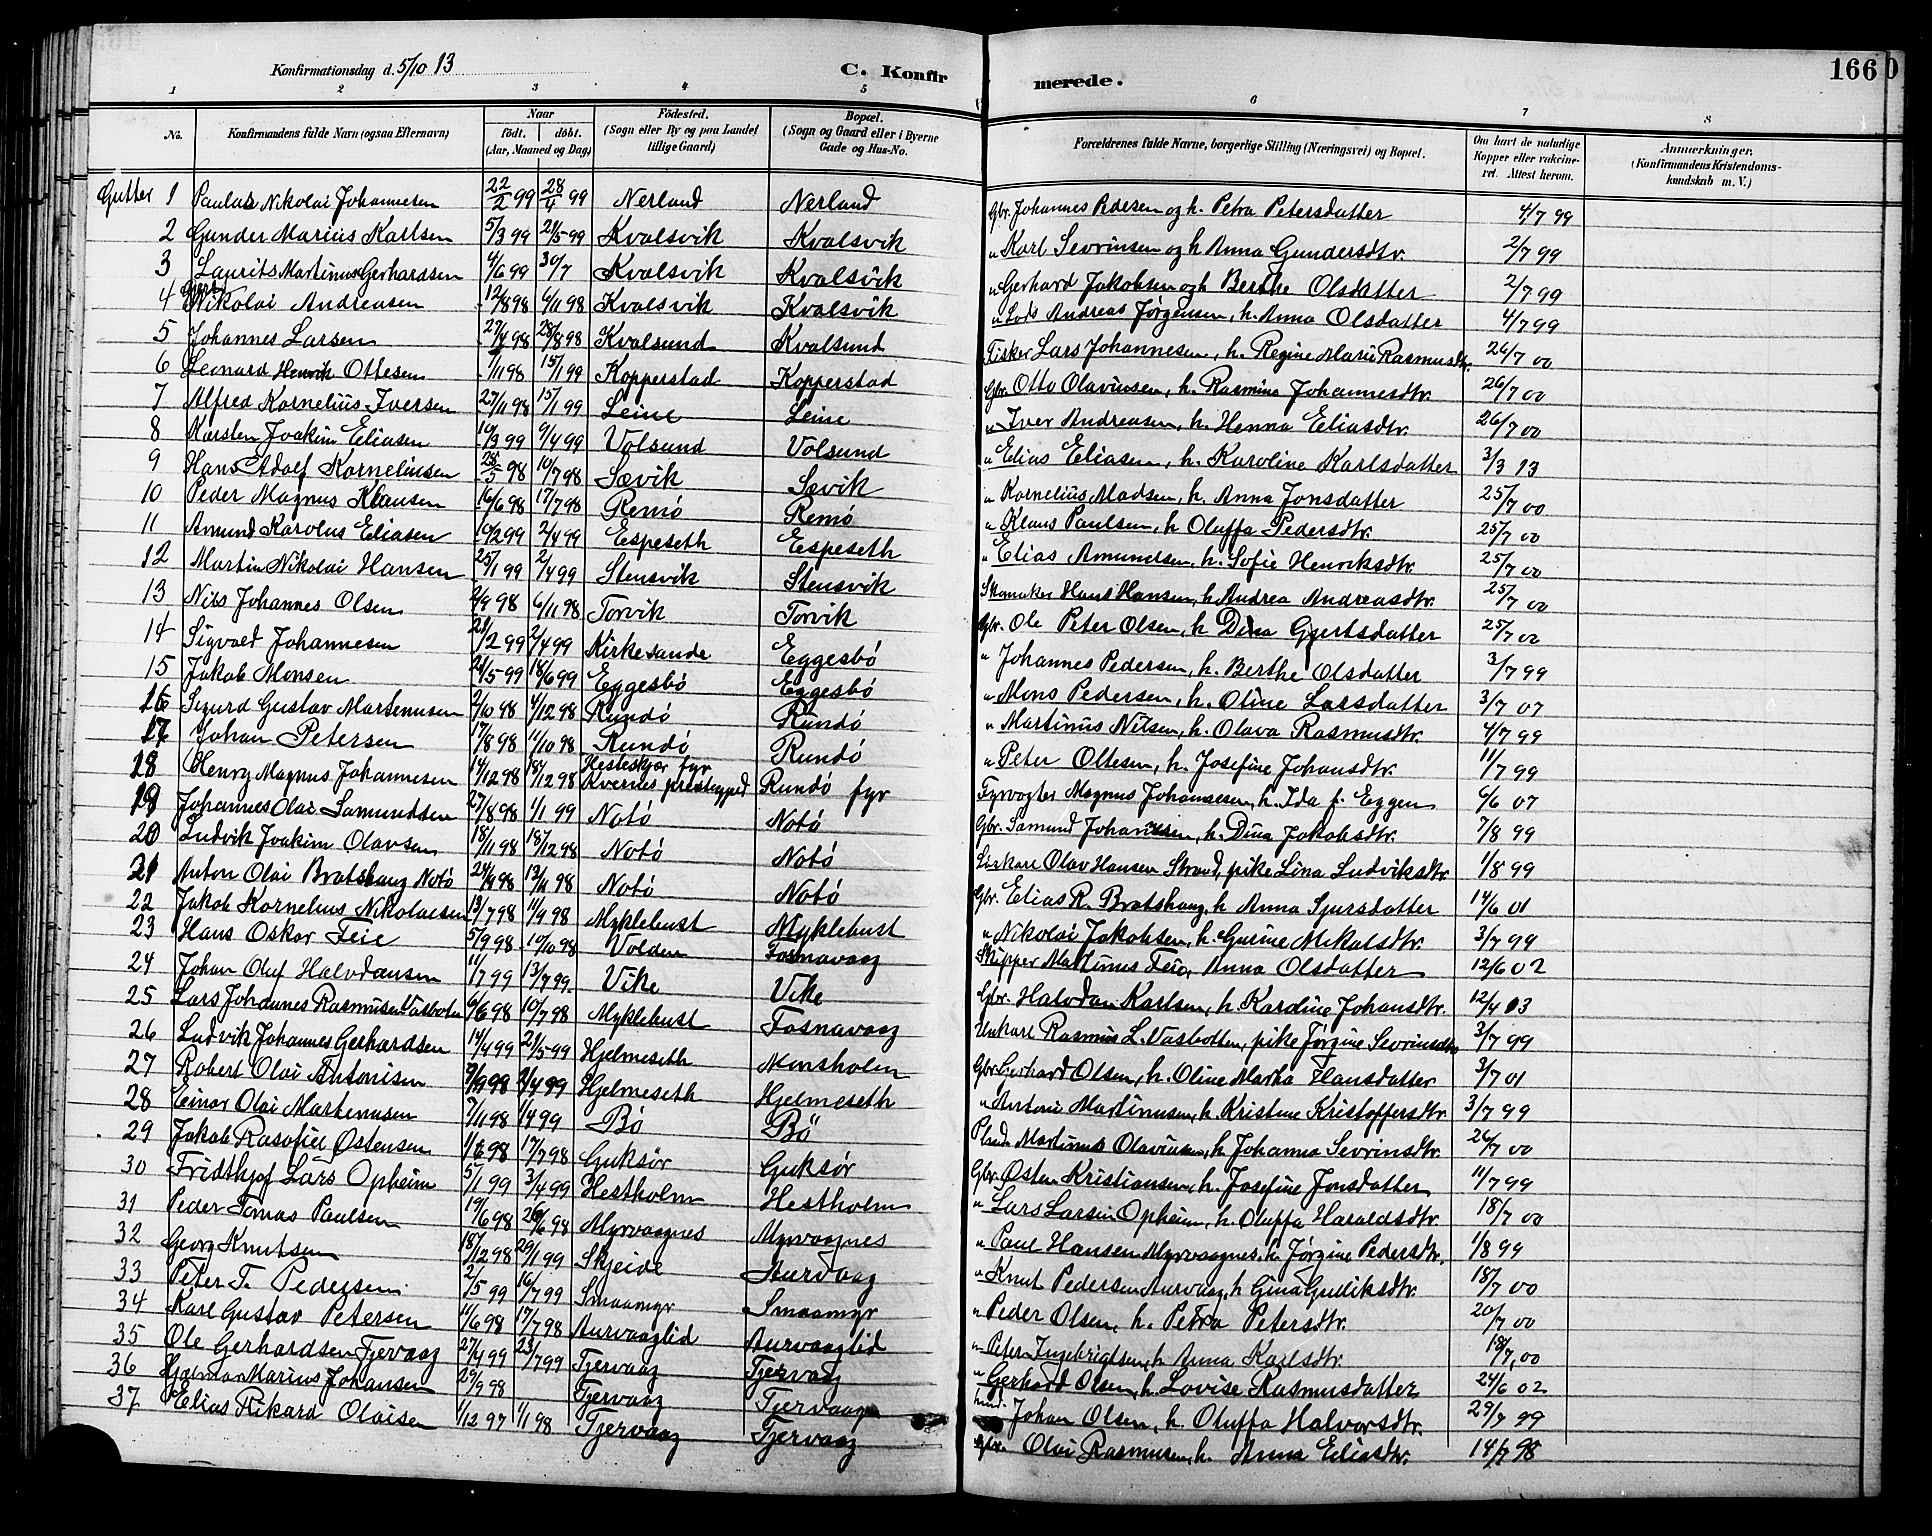 Konfirmationsdag d. 5/10 13
C. Konfir merede.
166
1 2 3 4 5 6 7 8
No. Konfirmandens fulde Navn (ogsaa Efternavn) Naar født. døbt. (Aar, Maaned og Dag) Fødested. (Sogn eller By og paa Landet tillige Gaard) Bopæl. (Sogn og Gaard eller i Byerne Gade og Hus-No. Forældrenes fulde Navne, borgerlige Stilling (Næringsvei) og Bopæl. Om havt de naturlige Kopper eller vakcineret. Attest herom. Anmærkninger. (Konfirmandens Kristendomskundskab m. V.)
Gutter 1 Paulas Nikolai Johannesen 22/2 99 28/4 99 Nerland Nerland Gbr. Johannes Pedersen og h. Petra Petersdatter 4/7 99
2 Gunder Marius Karlsen 5/3 99 21/5 99 Kvalsvik Kvalsvik " Karl Sevrinsen og h Anna Gundersdtr. 2/7 99
3 Laurits Martinus Gerhardsen 4/6 99 30/7 Kvalsvik Kvalsvik " Gerhard Jakobsen og h Berthe Olsdatter 2/7 99
4 Nikolai Andreasen 12/8 98 6/11 98 Kvalsvik Kvalsvik " Lods Andreas Jørgensen, h. Anna Olsdatter 4/7 99
5 Johannes Larsen 27/4 98 28/8 98 Kvalsund Kvalsund Fisker Lars Johannesen, h. Regine Marie Rasmusdtr. 26/7 00
6 Leonard Henrik Ottesen /11 98 15/1 99 Kopperstad Kopperstad Gbr. Otto Olavinsen, h. Rasmine Johannesdtr. 26/7 00
7 Alfred Kornelius Iversen 27/11 98 15/1 99 Leine Leine " Iver Andreasen, h. Henna Eliasdtr. 26/7 00
8 Karsten Joakim Eliasen 10/3 99 9/4 99 Volsund Volsund " Elias Eliasen, h. Karoline Karlsdatter 3/3 13
9 Hans Adolf Korneliusen 28/5 98 10/7 98 Sævik Sævik " Kornelius Madsen, h. Anna Jonsdatter 25/7 00
10 Peder Magnus Klausen 16/6 98 17/7 98 Remø Remø " Klaus Paulsen, h Oluffa Pedersdtr. 25/7 00
11 Amund Karolus Eliasen 10/2 99 2/4 99 Espeseth Espeseth " Elias Amundsen, h. Sofie Henriksdtr. 25/7 00
12 Martin Nikolai Hansen 25/1 99 2/4 99 Stensvik Stensvik Skomaker Hans Hansen, h Andrea Andreasdtr. 25/7 00
13 Nils Johannes Olsen /9 98 6/11 98 Torvik Torvik Gbr. Ole Peter Olsen, h Dina Gjertsdatter 25/7 00
14 Sigvald Johannesen 21/2 99 /4 99 Kirkesande Eggesbø " Johannes Pedersen, h. Berthe Olsdatter 3/7 99
15 Jakob Monsen 24/5 99 18/6 99 Eggesbø Eggesbø " Mons Pedersen, h. Oline Larsdatter 3/7 07
16 Sigurd Gustav Martinusen 2/10 98 4/12 98 Rundø Rundø " Martinus Nilsen, h. Olava Rasmusdtr. 4/7 99
17 Johan Petersen 17/8 98 11/10 98 Rundø Rundø " Peter Ottesen, h. Josefine Johansdtr. 11/7 99
18 Henry Magnus Johannesen 14/12 98 18/12 98 Hesteskjær fyr Kvernes prestegjeld Rundø fyr Fyrvogter Magnus Johannesen, h. Ida f. Eggen 6/6 07
19 Johannes Olai Samundsen 27/8 98 1/1 99 Notø Notø Gbr. Samund Johannesen, h. Dina Jakobsdtr. 7/8 99
20 Ludvik Joakim Olavsen 18/11 98 18/12 98 Notø Notø Olav Hansen Strand, pike Lina Ludviksdtr 1/8 99
21 Anton Olai Bratshaug Notø 24/4 98 13/11 98 Notø Notø Gbr. Elias R. Bratshaug, h Anna Sjursdatter 14/6 01
22 Jakob Kornelius Nikolaisen 13/7 98 11/9 98 Myklebust Myklebust " Nikolai Jakobsen, h. Gurine Mikalsdtr. 3/7 99
23 Hans Oskar Feie 5/9 98 10/10 98 Volden Fosnavaag Skipper Martinus Feie, Anna Olsdatter 12/6 02
24 Johan Oluf Halvdansen 11/7 99 13/7 99 Vike Vike Gbr. Halvdan Karlsen, h. Kardine Johansdtr. 12/4 03
25 Lars Johannes Rasmusen Vasbotn 6/6 98 10/7 98 Myklebust Fosnavaag Unkarl Rasmus L. Vasbotten, pike Jørgine Sevrinsdtr 3/7 99
26 Ludvik Johannes Gerhardsen 14/4 99 21/5 99 Hjelmeseth Monsholm Gbr. Gerhard Olsen, h. Oline Marta Hansdatter 3/7 01
27 Robert Olai Antonisen /9 98 2/4 99 Hjelmeseth Hjelmeseth " Antoni Martinusen, h Kristine Kristoffersdtr. 3/7 99
28 Einar Olai Martinusen 7/11 98 1/4 99 Bø Bø Martinus Olavinsen, h Johanna Sevrinsdtr. 26/7 00
29 Jakob Rasofiel Østensen 1/6 98 17/7 98 Guksør Guksør Gbr. Østen Kristiansen, h. Josefine Jonsdatter 11/7 99
30 Fridthjof Lars Opheim 5/1 99 3/4 99 Hestholm Hestholm " Lars Larsen Opheim, h. Oluffa Haraldsdtr. 18/7 00
31 Peder Tomas Paulsen 19/6 98 26/6 98 Myrvaagnes Myrvaagnes " Paul Hansen Myrvaagnes. h. Jørgine Pedersdtr. 1/8 99
32 Georg Knutsen 18/12 98 29/1 99 Skjeide Aurvaag " Knut Pedersen Aurvaag, h Gina Gudiksdtr. 18/7 00
33 Peter T. Pedersen. 2/5 99 16/7 99 Smaamyr Smaamyr " Peder Olsen, h. Petra Petersdtr. 20/7 00
34 Karl Gustav Petersen 11/6 98 17/7 98 Aurvaaglid Aurvaaglid " Peter Ingebrigtsen, h Anna Karlsdtr. 18/7 00
35 Ole Gerhardsen Tjervaag 27/4 99 23/7 99 Tjervaag Tjervaag " Gerhard Olsen, h. Lovise Rasmusdatter 24/6 02
36 Hjalmar Marius Johansen 29/9 98 Tjervaag Tjervaag Johan Olsen, h. Oluffa Halvorsdtr. 29/7 99
37 Elias Rikard Olaisen 1/12 97 1/1 98 Tjervaag Tjervaag Gbr. Olai Rasmusen, h. Anna Eliasdtr. 14/7 98